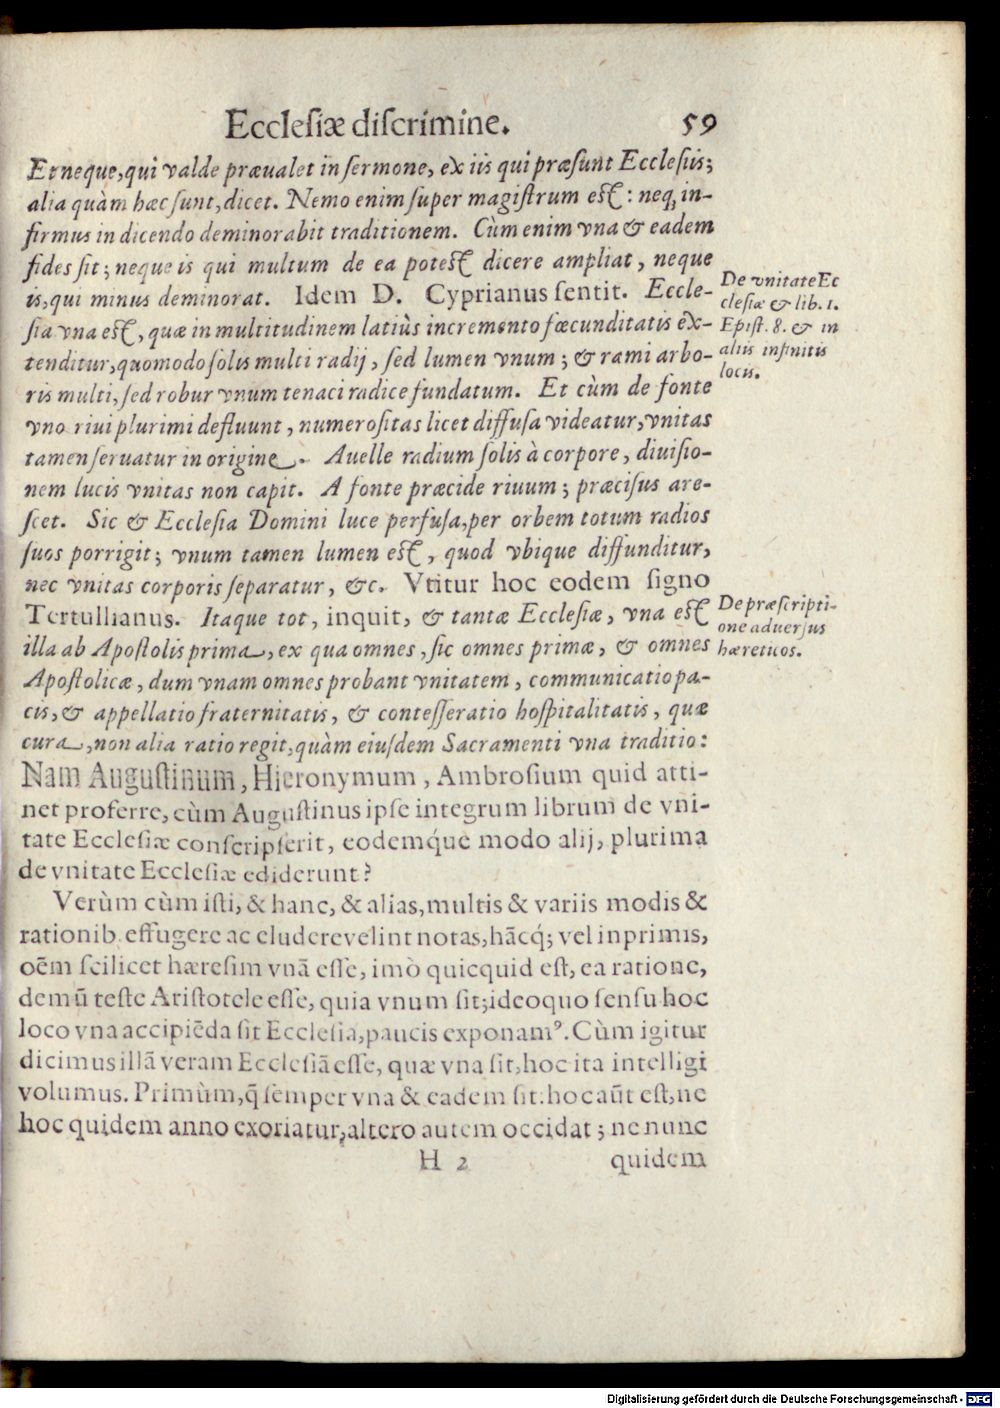 Ecclesiæ discrimine. 59
Et neque, qui valde præualet in sermone, ex iis qui præsunt Ecclesiis;
alia quàm hæc sunt, dicet. Nemo enim super magistrum est: neq; in-
firmus in dicendo deminorabit traditionem. Cùm enim vna & eadem
fides sit; neque is qui multum de ea potest dicere ampliat, neque
is, qui minus deminorat. Idem D. Cyprianus sentit. Eccle-
sia vna est, quæ in multitudinem latiùs incremento fœcunditatis ex-
tenditur, quomodo solis multi radij, sed lumen vnum; & rami arbo-
ris multi, sed robur vnum tenaci radice fundatum. Et cùm de fonte
vno riui plurimi defluunt, numerositas licet diffusa videatur, vnitas
tamen seruatur in origine. Auelle radium solis à corpore, diuisio-
nem lucis vnitas non capit. A fonte præcide riuum; præcisus are-
scet. Sic & Ecclesia Domini luce perfusa, per orbem totum radios
suos porrigit; vnum tamen lumen est, quod vbique diffunditur,
nec vnitas corporis separatur, &c. Vtitur hoc eodem signo
Tertullianus. Itaque tot, inquit, & tantæ Ecclesiæ, vna est
illa ab Apostolis prima, ex qua omnes, sic omnes primæ, & omnes
Apostolicæ, dum vnam omnes probant vnitatem, communicatio pa-
cis, & appellatio fraternitatis, & contesseratio hospitalitatis, quæ
cura, non alia ratio regit, quàm eiusdem Sacramenti vna traditio:
Nam Augustinum, Hieronymum, Ambrosium quid atti-
net proferre, cùm Augustinus ipse integrum librum de vni-
tate Ecclesiæ conscripserit, eodemq́ue modo alij, plurima
de vnitate Ecclesiæ ediderunt?
Verùm cùm isti, & hanc, & alias, multis & variis modis &
rationib. effugere ac eludere velint notas, hãcq́; vel inprimis,
oẽm scilicet hæresim vnã esse, imò quicquid est, ea ratione,
demũ teste Aristotele esse, quia vnum sit; ideo quo sensu hoc
loco vna accipiẽda sit Ecclesia, paucis exponamꝰ. Cùm igitur
dicimus illã veram Ecclesiã esse, quæ vna sit, hoc ita intelligi
volumus. Primùm, q̃ semper vna & eadem sit: hoc aũt est, ne
hoc quidem anno exoriatur, altero autem occidat; ne nunc
H 2 quidem
De vnitate Ec
clesiæ & lib. 1.
Epist. 8. & in
aliis infinitis
locis.
De præscripti-
one aduersus
hæreticos.
Digitalisierung gefördert durch die Deutsche Forschungsgemeinschaft - DFG